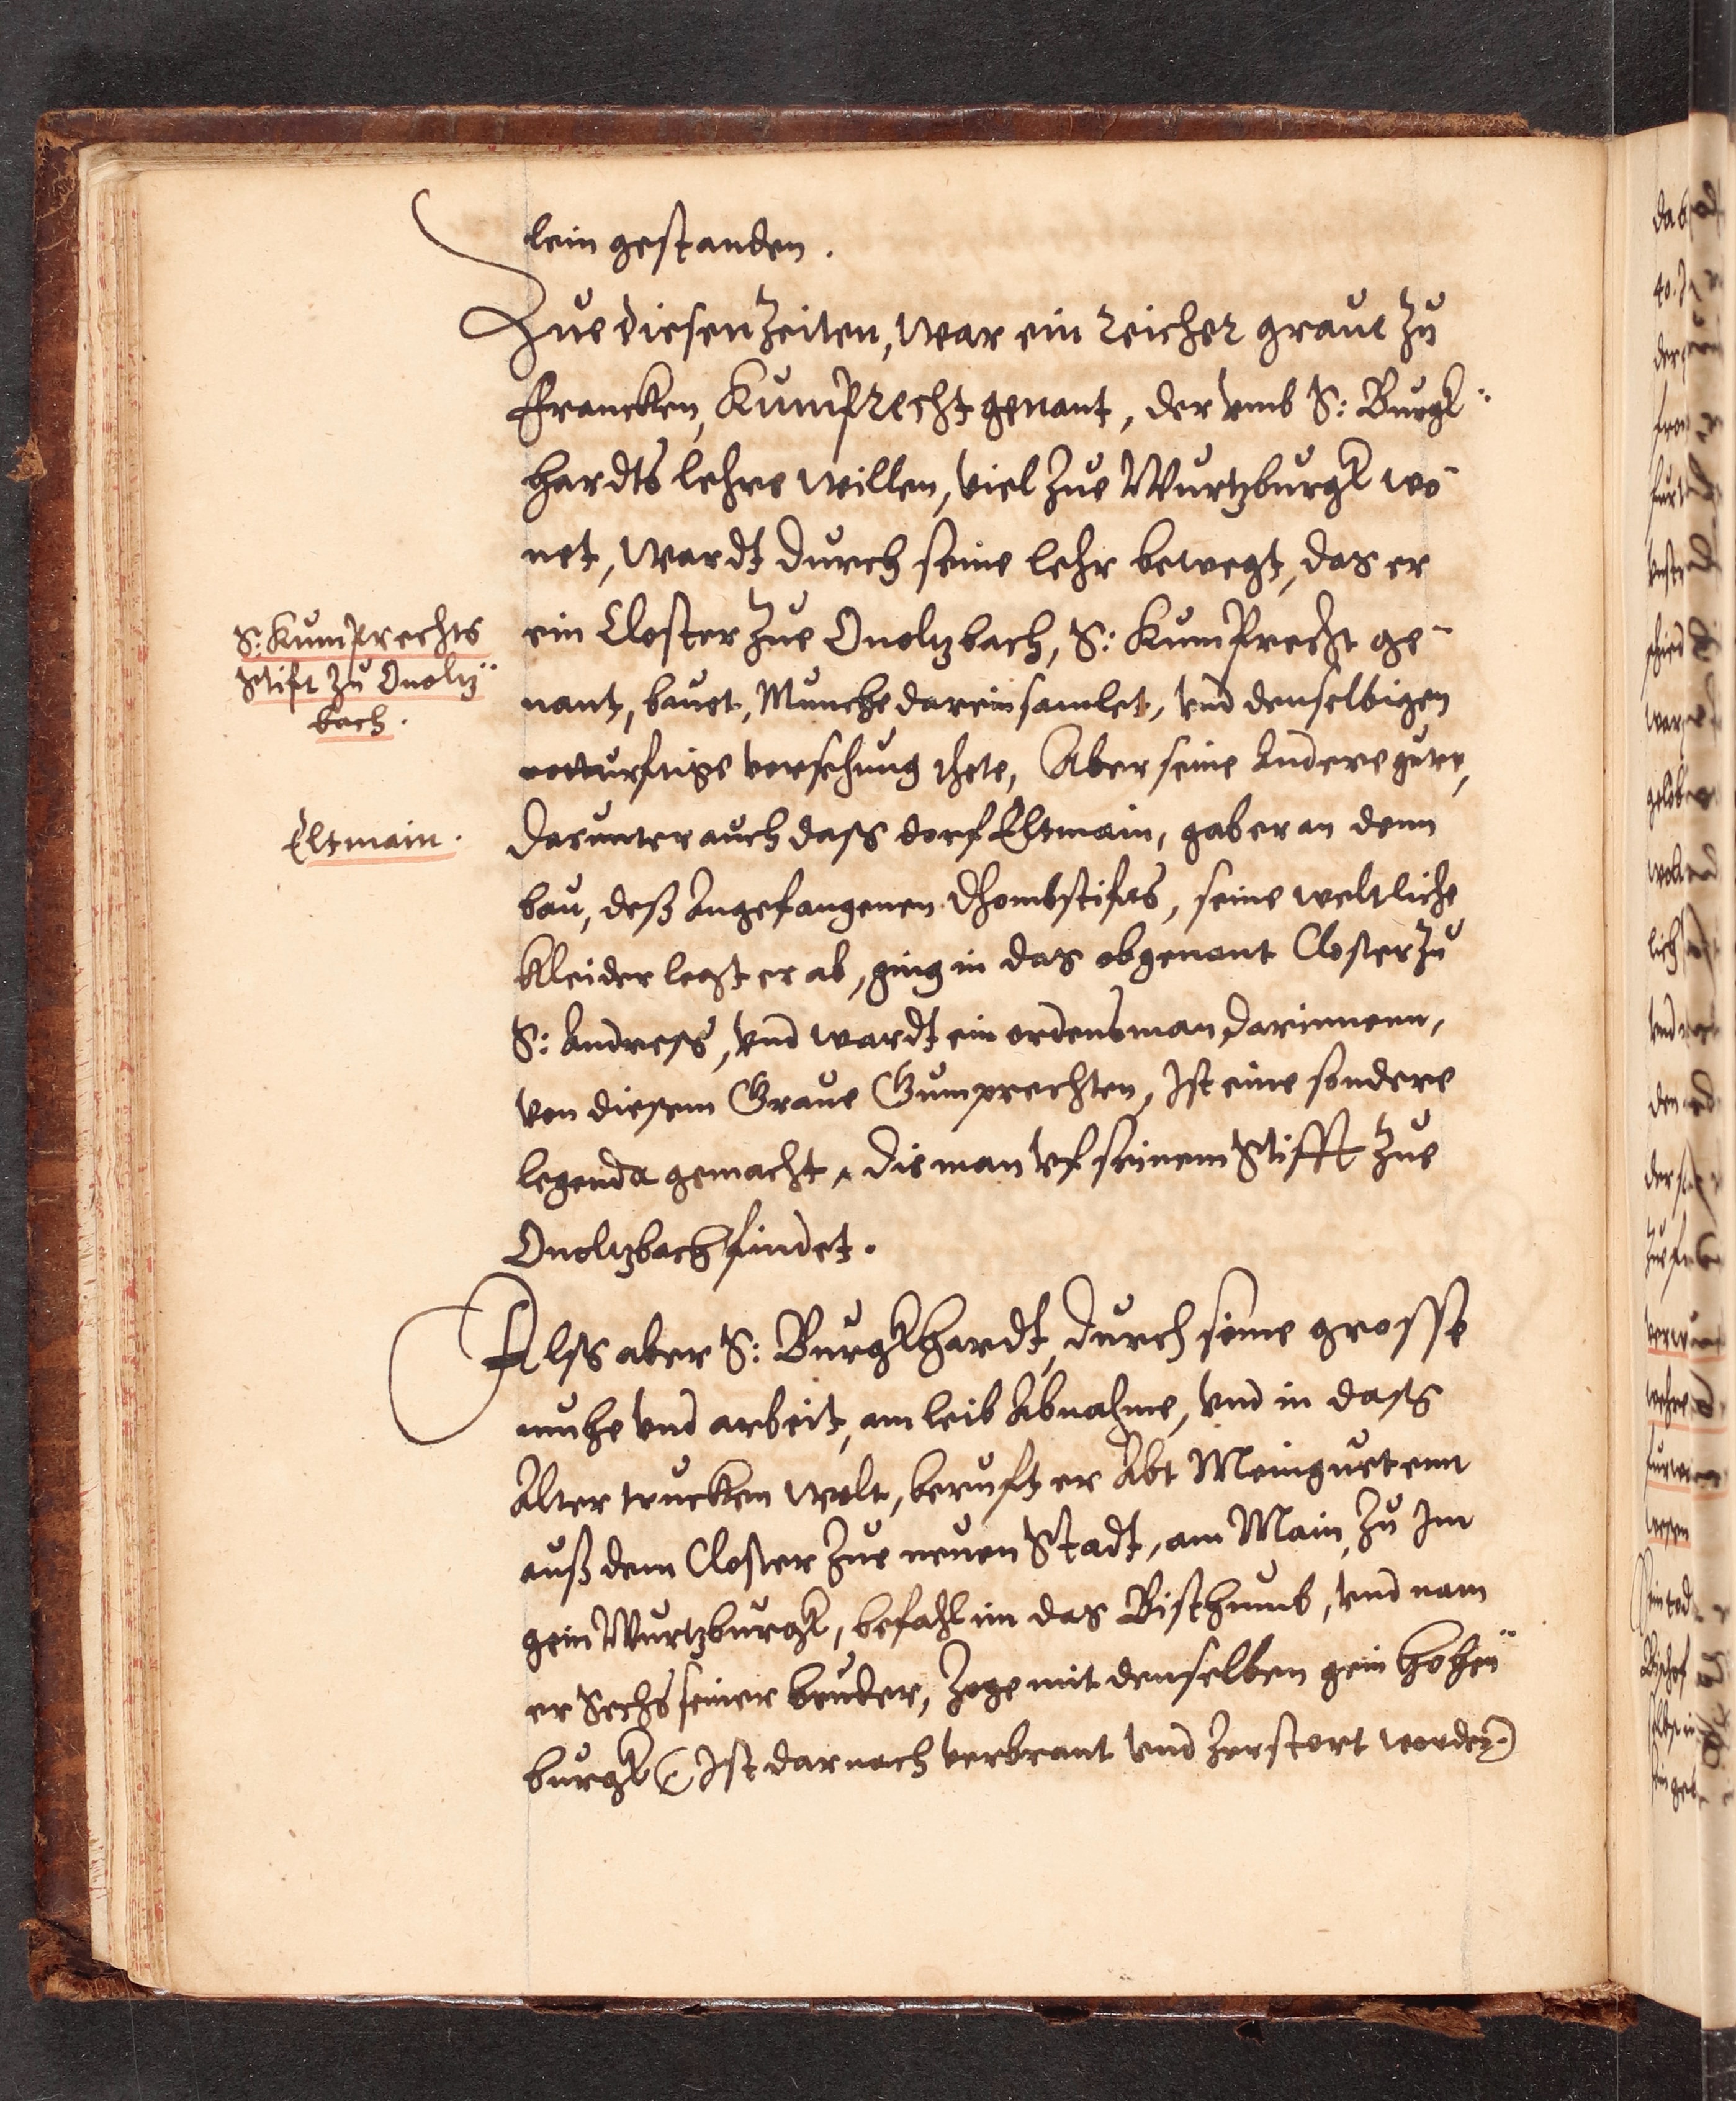 lein gestanden.
Zue diesen Zeiten, war ein reicher graue zu
Francken, Kumprecht genant, der vmb S: Burgk¨
hardts lehre willen, viel zue Wurtzburgk wo-
net, wardt durch seine lehr bewegt, das er
ein Closter zue Onoltzbach, S: Kumprecht ge-
nant, bauet, Munche darein samlet, vnd denselbigen
notturftige versehung thete, Aber seine Andere gute,
Darunter auch dass dorf Eltmain, gab er an denn
bau, deß Angefangenen Dhombstifts, seine weltliche
Kleider legt er ab, ging in das obgenant Closter zu
S: Andress, vnd wardt ein ordensman darinnenn,
von diesem Graue Gumprechten, Ist eine sondere
legenda gemacht, die man vf seinem Stifft zue
Onoltzbach findet.
Alss aber S: Burgkhardt, durch seine grosse
muhe vnd arbeit, am leib Abnahme, vnd in dass
Alter trucken wolt, beruft er Abt Meingutenn
auß dem Closter zue neuen Stadt, am Main, zu Im
gein Wurtzburgk, befahl im das Bisthumb, vnd nam
er Sechs seiner bruder, Zoge mit denselben gein Hohen¨
burgk (Ist darnach verbrant vnd zerstort worden.)
S: Kumprechts
Stift zu Onoltz¨
bach.
Eltmain.